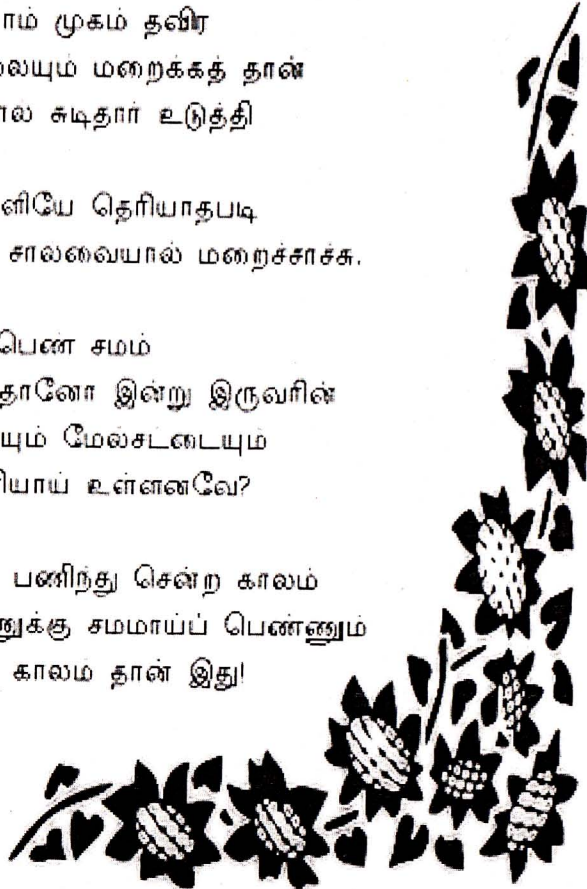 ாம் முகம் தவிர
லையும் மறைக்கத் தான்
ால் சுடிதார் உடுத்தி
ளியே தெரியாதபடி
சாலவையால் மறைச்சாச்சு.
பெண் சமம்
தானோ இன்று இருவரின்
யும் மேல்சட்டையும்
ியாய் உள்ளனவே?
பணிந்து சென்ற காலம்
னுக்கு சமமாய்ப் பெண்ணும்
காலம் தான் இது!